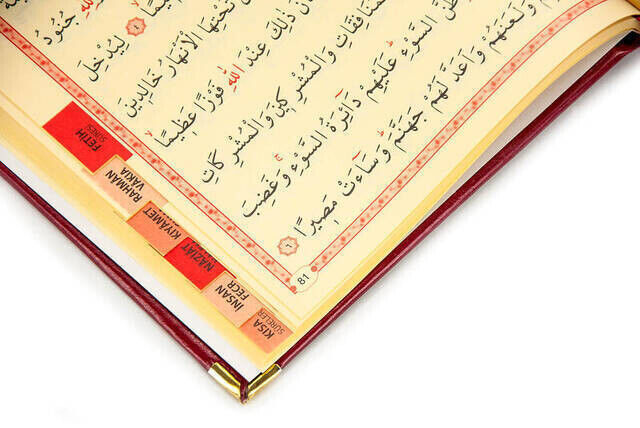 جُنُودُ
لِيُدْخِلَ
تَحْتِهَا الْاَنْهَارُ خَالِدِينَ
ذٰلِكَ عِنْدَ اللّٰهِ فَوْزًا عَظِيمًا
وَالْمُشْرِكِينَ وَالْمُشْرِكَاتِ
السَّوْءِ عَلَيْهِمْ دَٓائِرَةُ السَّوْءِ وَغَضِبَ
وَلَعَنَهُمْ وَاَعَدَّ لَهُمْ جَهَنَّمَ وَسَٓاءَتْ مَصِيرًا ٦
81
FETİH
SURESİ
RAHMAN
VAKIA
KIYAMET
NAZİAT
İNSAN
FECR
KISA
SURELER